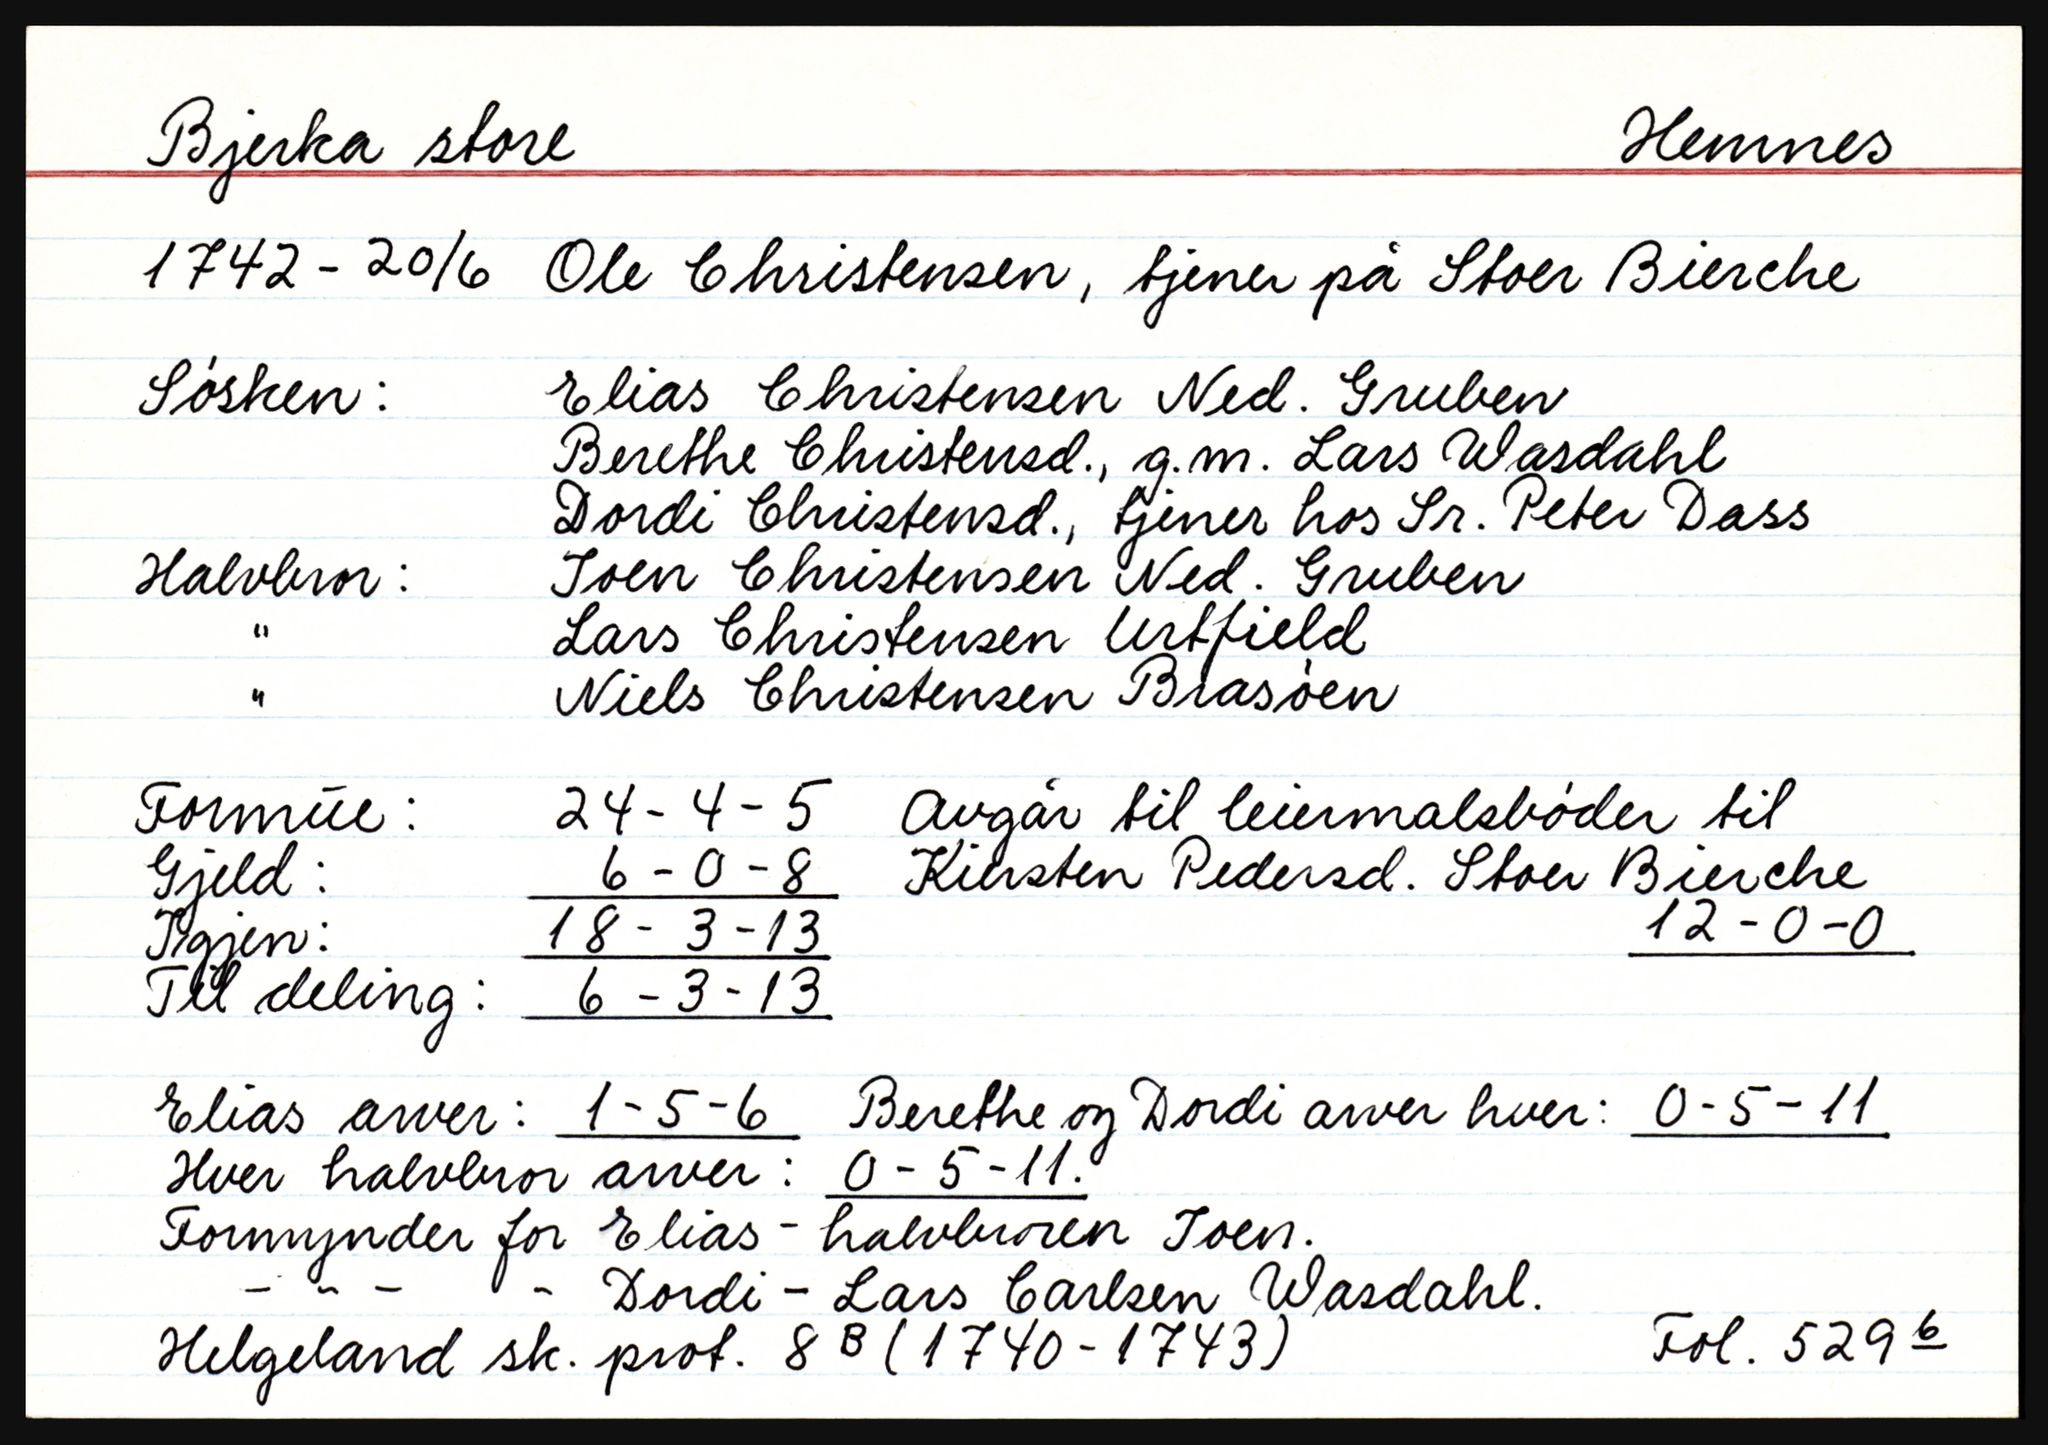 Bjerka store Hemnes
1742 - 20/6 Ole Christensen, tjener på Stoer Bierche
Søsken: Elias Christensen Ned. Gruben
Berethe Christensd., g.m. Lars Wasdahl
Dordi Christensd., tjener hos Sr. Peter Dass
Halvbror: Joen Christensen Ned. Gruben
" Lars Christensen Urtfield
" Niels Christensen Brasøen
Formue: 24 - 4 - 5 Avgår til leiermalsbøder til
Gjeld: 6 - 0 - 8 Kiersten Pedersd. Stoer Bierche
Igjen: 18 - 3 - 13 12 - 0 - 0
Til deling: 6 - 3 - 13
Elias arver: 1 - 5 - 6 Berethe og Dordi arver hver: 0 - 5 - 11
Hver halvbror arver: 0 - 5 - 11.
Formynder for Elias - halvbroren Joen.
- " - " Dordi - Lars Carlsen Wasdahl.
Helgeland sk. prot. 8 B (1740 - 1743) Fol. 529 b